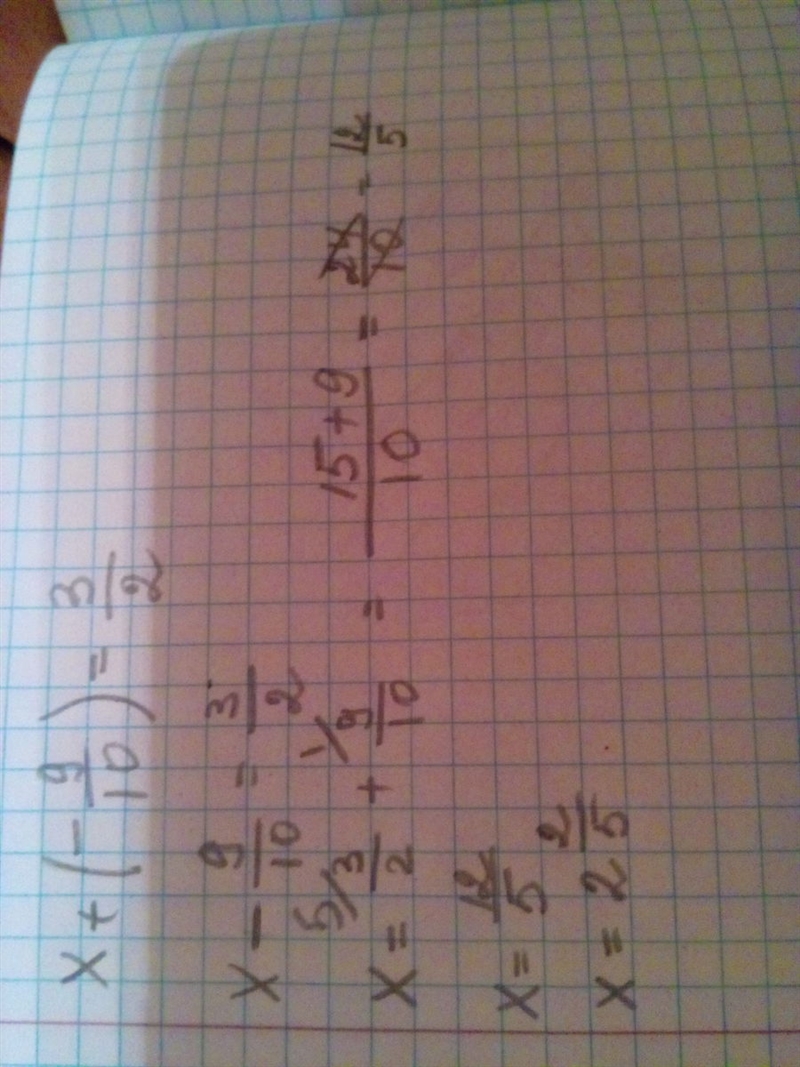 x + (- 9/10) = 3/2
x - 9/10 = 3/2
x = 5/ 3/2 + 1/ 9/10 = (15+9)/10 = 24/10 = 12/5
x = 12/5
x = 2 2/5